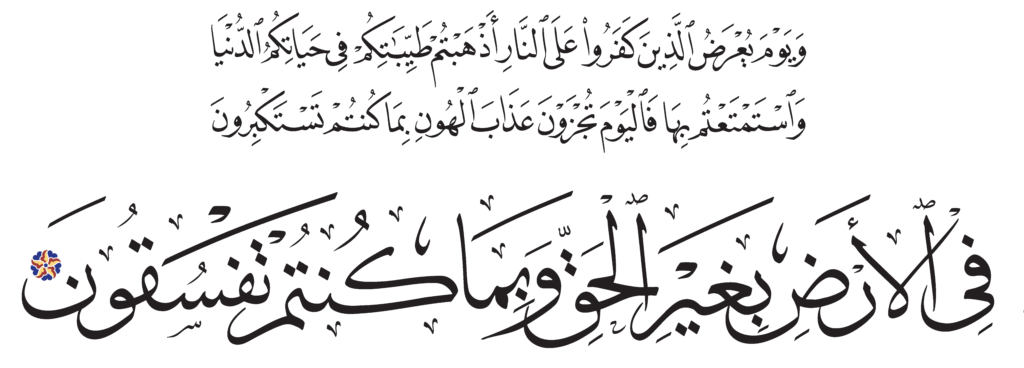 وَيَوْمَ يُعْرَضُ ٱلَّذِينَ كَفَرُوا۟ عَلَى ٱلنَّارِ أَذْهَبْتُمْ طَيِّبَٰتِكُمْ فِى حَيَاتِكُمُ ٱلدُّنْيَا
وَٱسْتَمْتَعْتُم بِهَا فَٱلْيَوْمَ تُجْزَوْنَ عَذَابَ ٱلْهُونِ بِمَا كُنتُمْ تَسْتَكْبِرُونَ
فِى ٱلْأَرْضِ بِغَيْرِ ٱلْحَقِّ وَبِمَا كُنتُمْ تَفْسُقُونَ